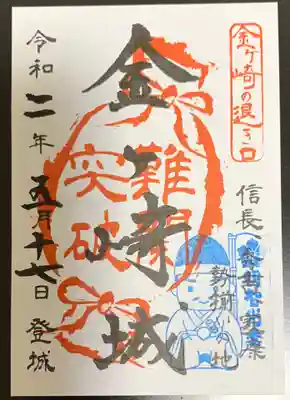 金ヶ崎の退き口
信長
勢揃いの地
金ヶ崎城
難関
突破
令和二年五月十七日 登城